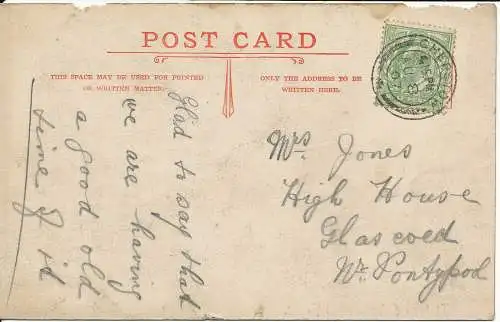 POST CARD
THIS SPACE MAY BE USED FOR PRINTED
OR WRITTEN MATTER.
ONLY THE ADDRESS TO BE
WRITTEN HERE.
Glad to say that
we are having
a good old
time of it
Mrs Jones
High House
Glascoed
Nr Pontypod